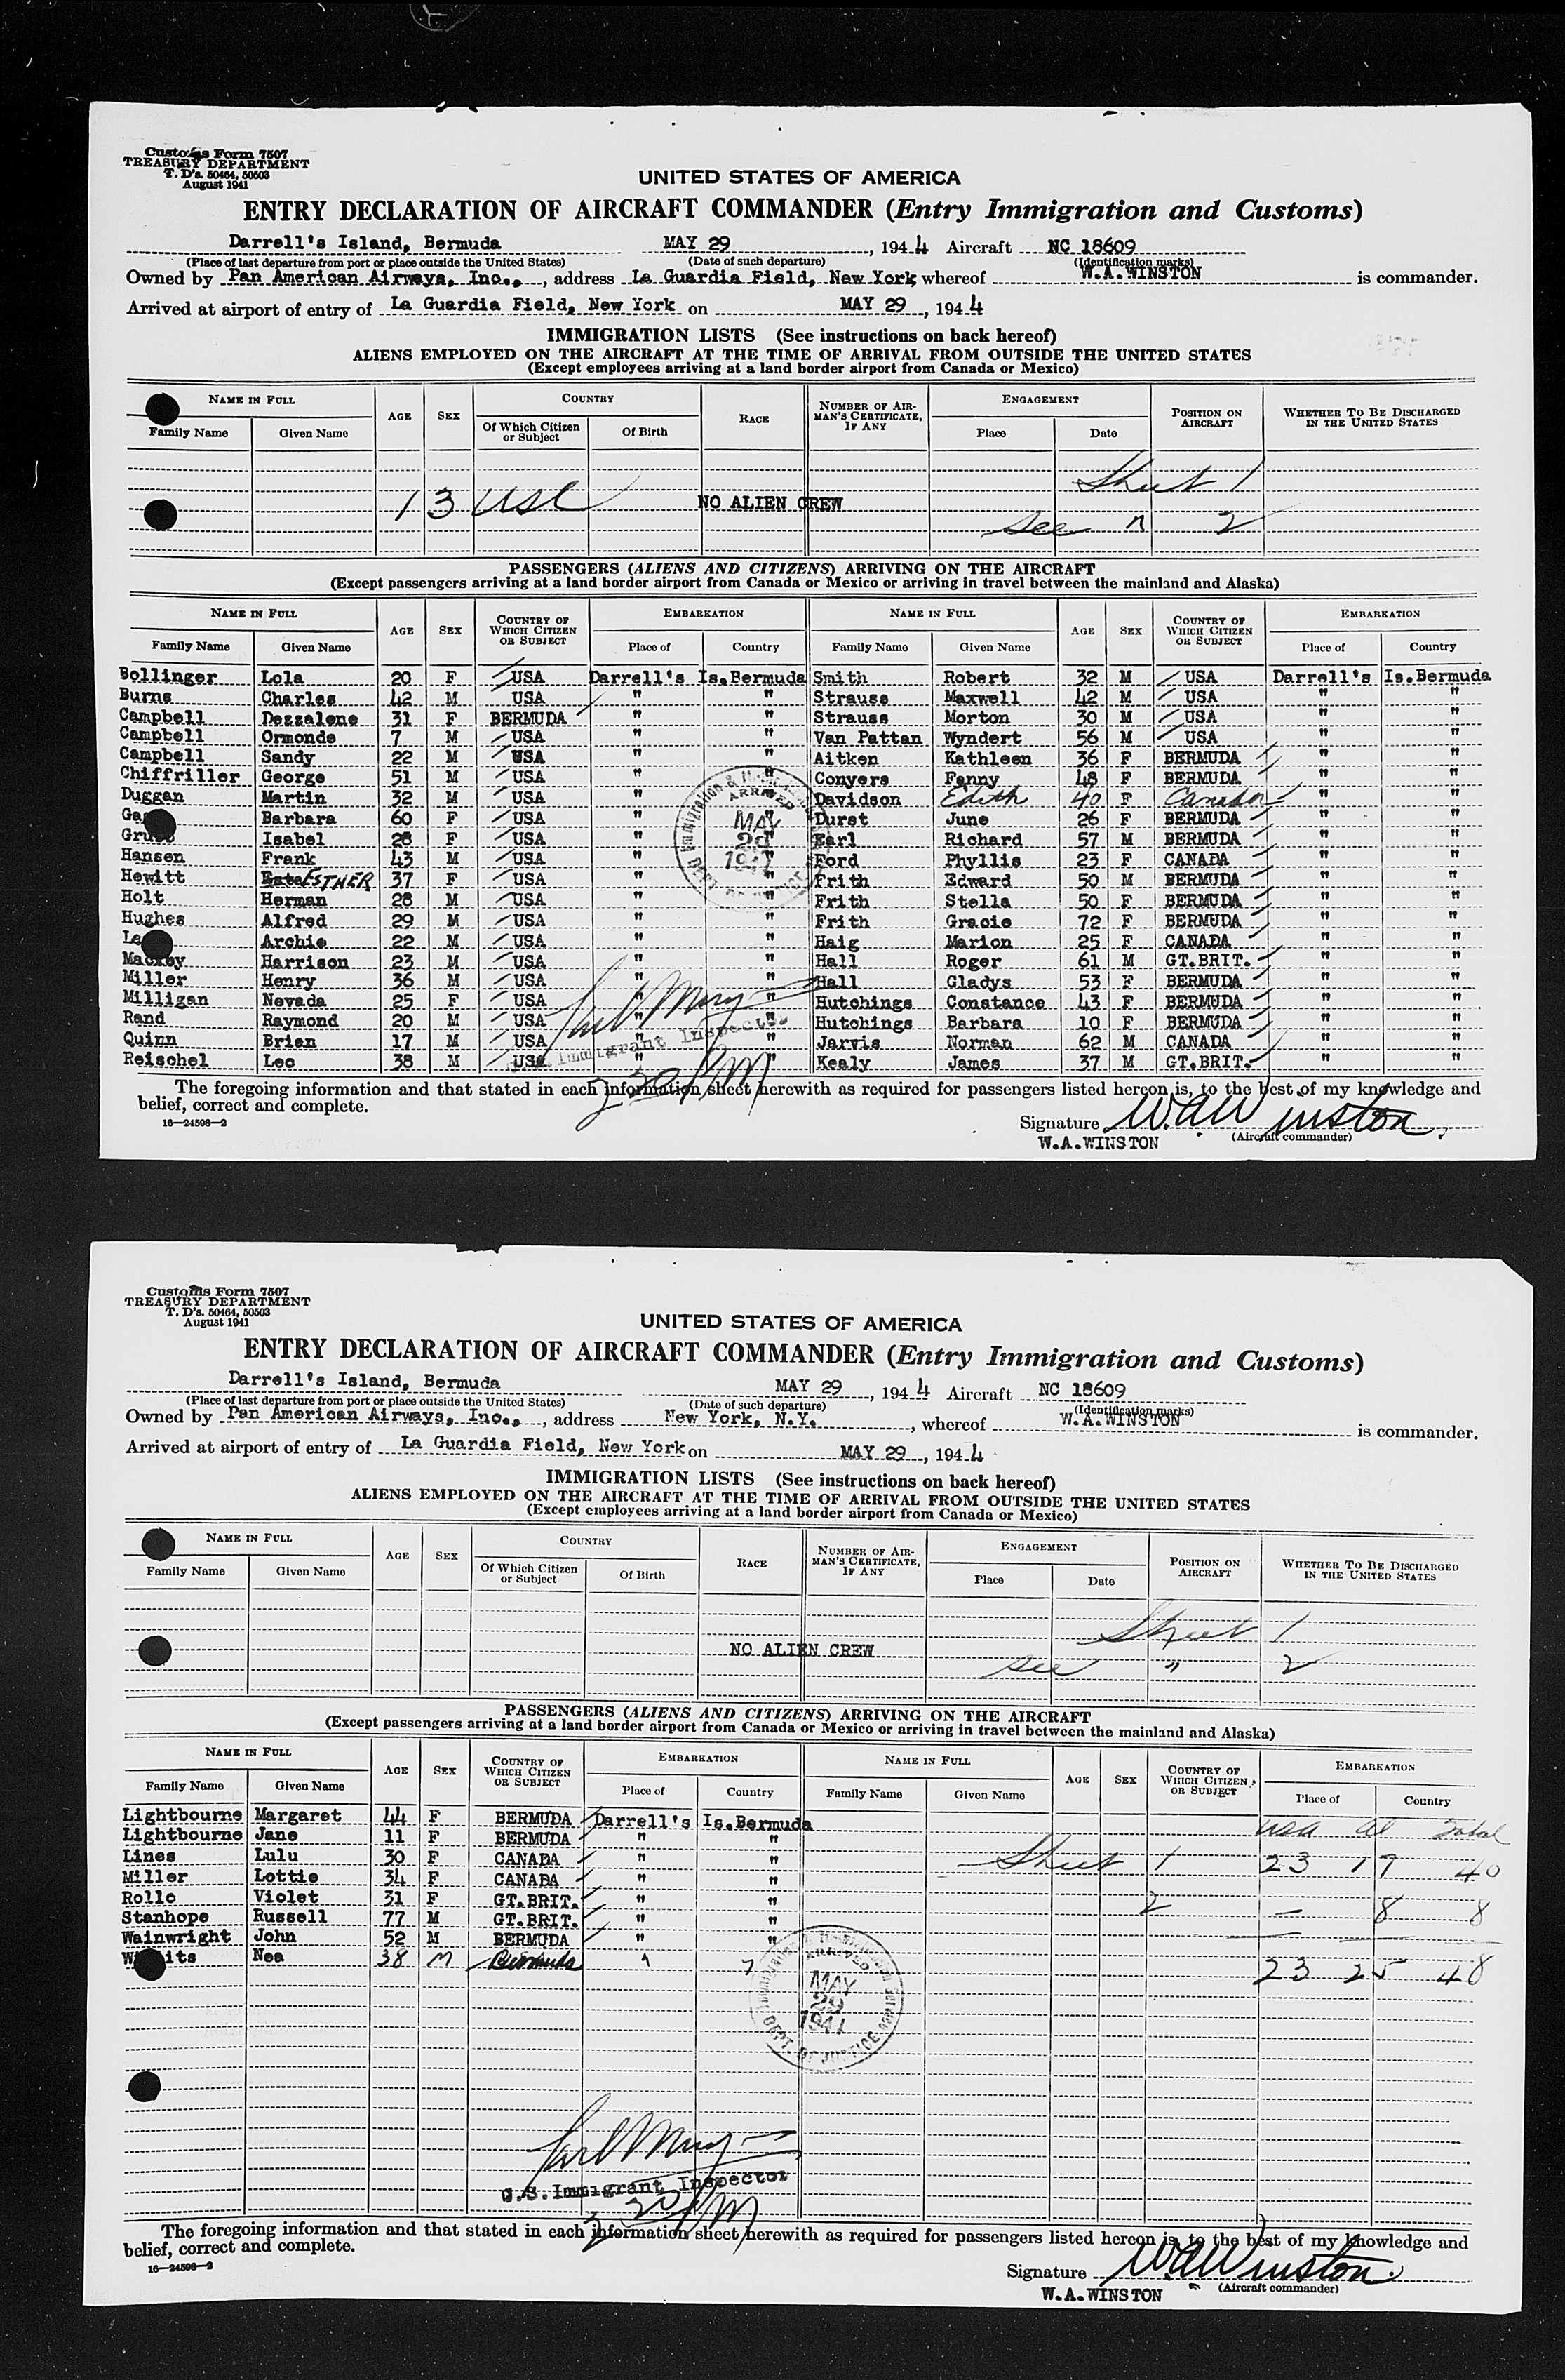 Customs Form 7507
TREASURY DEPARTMENT
T. D's. 50464, 50503
August 1941
UNITED STATES OF AMERICA
ENTRY DECLARATION OF AIRCRAFT COMMANDER (Entry Immigration and Customs)
Darrell's Island, Bermuda MAY 29, 1944 Aircraft NC 18609
(Place of last departure from port or place outside the United States) (Date of such departure) (Identification marks)
Owned by Pan American Airways, Inc., , address La Guardia Field, New York, whereof W.A.WINSTON is commander.
Arrived at airport of entry of La Guardia Field, New York on MAY 29, 1944
IMMIGRATION LISTS (See instructions on back hereof)
ALIENS EMPLOYED ON THE AIRCRAFT AT THE TIME OF ARRIVAL FROM OUTSIDE THE UNITED STATES
(Except employees arriving at a land border airport from Canada or Mexico)
NAME IN FULL AGE SEX COUNTRY RACE NUMBER OF AIRMAN'S CERTIFICATE, IF ANY ENGAGEMENT POSITION ON AIRCRAFT WHETHER TO BE DISCHARGED IN THE UNITED STATES
Family Name Given Name Of Which Citizen or Subject Of Birth Place Date
Sheet 1
13 USC NO ALIEN CREW
See " 2
PASSENGERS (ALIENS AND CITIZENS) ARRIVING ON THE AIRCRAFT
(Except passengers arriving at a land border airport from Canada or Mexico or arriving in travel between the mainland and Alaska)
NAME IN FULL AGE SEX COUNTRY OF WHICH CITIZEN OR SUBJECT EMBARKATION NAME IN FULL AGE SEX COUNTRY OF WHICH CITIZEN OR SUBJECT EMBARKATION
Family Name Given Name Place of Country Family Name Given Name Place of Country
Bollinger Lola 20 F USA Darrell's Is.Bermuda Smith Robert 32 M USA Darrell's Is.Bermuda
Burns Charles 42 M USA " " Strauss Maxwell 42 M USA " "
Campbell Dezzalene 31 F BERMUDA " " Strauss Morton 30 M USA " "
Campbell Ormonde 7 M USA " " Van Pattan Wyndert 56 M USA " "
Campbell Sandy 22 M USA " " Aitken Kathleen 36 F BERMUDA " "
Chiffriller George 51 M USA " " Conyers Fanny 48 F BERMUDA " "
Duggan Martin 32 M USA " " Davidson Edith 40 F Canada " "
Barbara 60 F USA " " Durst June 26 F BERMUDA " "
Isabel 28 F USA " " Earl Richard 57 M BERMUDA " "
Hansen Frank 43 M USA " " Ford Phyllis 23 F CANADA " "
Hewitt ESTHER 37 F USA " " Frith Edward 50 M BERMUDA " "
Holt Herman 28 M USA " " Frith Stella 50 F BERMUDA " "
Hughes Alfred 29 M USA " " Frith Gracie 72 F BERMUDA " "
Archie 22 M USA " " Haig Marion 25 F CANADA " "
Mackey Harrison 23 M USA " " Hall Roger 61 M GT.BRIT. " "
Miller Henry 36 M USA " " Hall Gladys 53 F BERMUDA " "
Milligan Nevada 25 F USA " " Hutchings Constance 43 F BERMUDA " "
Rand Raymond 20 M USA " " Hutchings Barbara 10 F BERMUDA " "
Quinn Brian 17 M USA " " Jarvis Norman 62 M CANADA " "
Reischel Leo 38 M USA " " Kealy James 37 M GT.BRIT. " "
ARRIVED
MAY
29
Immigrant Inspector
The foregoing information and that stated in each information sheet herewith as required for passengers listed hereon is, to the best of my knowledge and
belief, correct and complete.
16—24598—2
Signature W.A.Winston
W.A.WINSTON (Aircraft commander)
Customs Form 7507
TREASURY DEPARTMENT
T. D's. 50464, 50503
August 1941
UNITED STATES OF AMERICA
ENTRY DECLARATION OF AIRCRAFT COMMANDER (Entry Immigration and Customs)
Darrell's Island, Bermuda MAY 29, 1944 Aircraft NC 18609
(Place of last departure from port or place outside the United States) (Date of such departure) (Identification marks)
Owned by Pan American Airways, Inc., , address New York, N.Y. , whereof W.A.WINSTON is commander.
Arrived at airport of entry of La Guardia Field, New York on MAY 29, 1944
IMMIGRATION LISTS (See instructions on back hereof)
ALIENS EMPLOYED ON THE AIRCRAFT AT THE TIME OF ARRIVAL FROM OUTSIDE THE UNITED STATES
(Except employees arriving at a land border airport from Canada or Mexico)
NAME IN FULL AGE SEX COUNTRY RACE NUMBER OF AIRMAN'S CERTIFICATE, IF ANY ENGAGEMENT POSITION ON AIRCRAFT WHETHER TO BE DISCHARGED IN THE UNITED STATES
Family Name Given Name Of Which Citizen or Subject Of Birth Place Date
Sheet 1
NO ALIEN CREW
see " 2
PASSENGERS (ALIENS AND CITIZENS) ARRIVING ON THE AIRCRAFT
(Except passengers arriving at a land border airport from Canada or Mexico or arriving in travel between the mainland and Alaska)
NAME IN FULL AGE SEX COUNTRY OF WHICH CITIZEN OR SUBJECT EMBARKATION NAME IN FULL AGE SEX COUNTRY OF WHICH CITIZEN OR SUBJECT EMBARKATION
Family Name Given Name Place of Country Family Name Given Name Place of Country
Lightbourne Margaret 44 F BERMUDA Darrell's Is.Bermuda usa al Total
Lightbourne Jane 11 F BERMUDA " "
Lines Lulu 30 F CANADA " " Sheet 1 23 17 40
Miller Lottie 34 F CANADA " "
Rollo Violet 31 F GT.BRIT. " " 2 — 8 8
Stanhope Russell 77 M GT.BRIT. " "
Wainwright John 52 M BERMUDA " "
Nea 38 M Bermuda " " 23 25 48
ARRIVED
MAY
29
1944
DEPT. OF JUSTICE
U.S. Immigrant Inspector
The foregoing information and that stated in each information sheet herewith as required for passengers listed hereon is, to the best of my knowledge and
belief, correct and complete.
16—24598—2
Signature W.A.Winston
W.A.WINSTON (Aircraft commander)